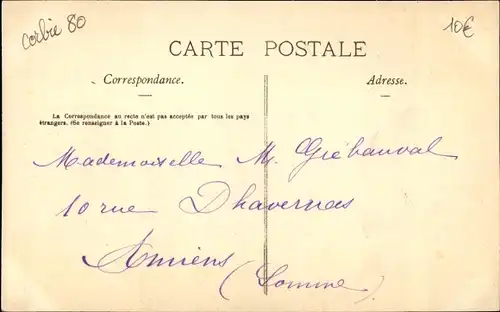 corbie 80
10€
CARTE POSTALE
Correspondance.
Adresse.
La Correspondance au recto n'est pas acceptée par tous les pays
étrangers. (Se renseigner à la Poste.)
Mademoiselle M. Giébauval
10 rue Dhavernas
Amiens (Somme)